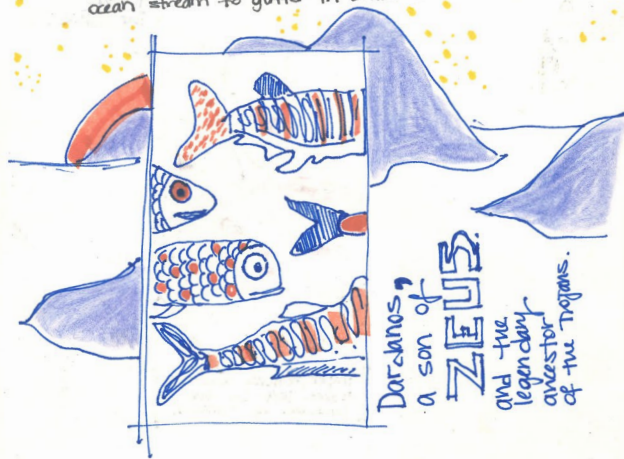 ocean stream to
Dardanos,
a son of
ZEUS
and the
legendary
ancestor
of the Trojans.